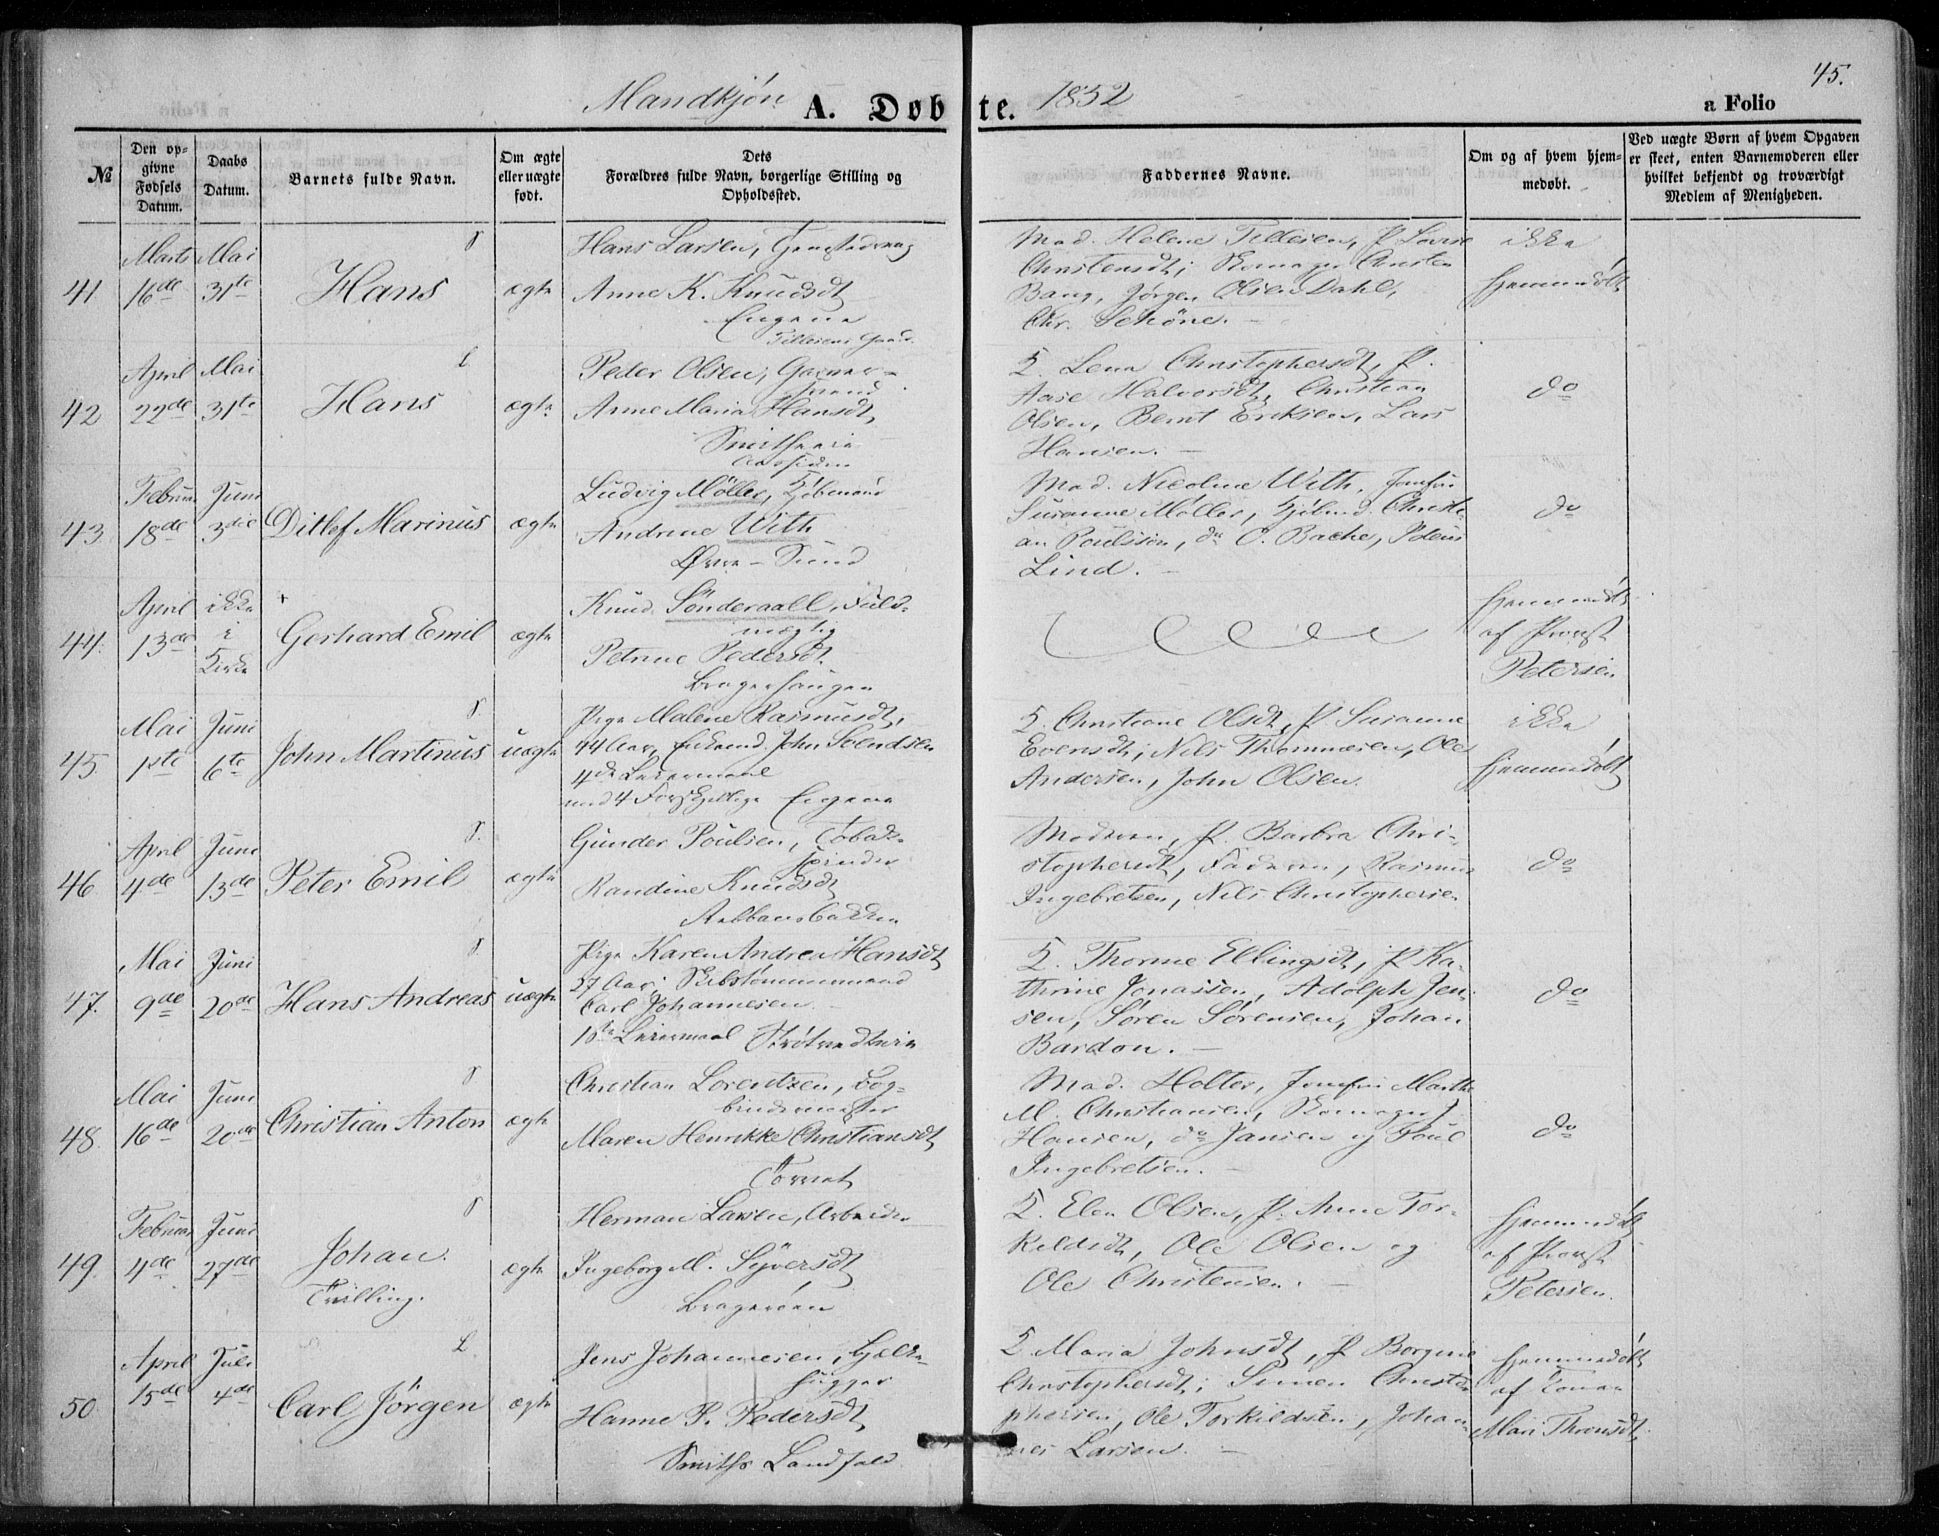 45.
Mandkjön A. Døbte. 1852
a Folio
№
Den opgivne Fødsels Datum.
Daabs Datum.
Barnets fulde Navn.
Om ægte eller uægte født.
Dets Forældres fulde Navn, borgerlige Stilling og Opholdssted.
Faddernes Navne.
Om og af hvem hjemmedøbt.
Ved uægte Børn af hvem Opgaven er skeet, enten Barnemoderen eller hvilket bekjendt og troværdigt Medlem af Menigheden.
41 Marts 16de Mai 31te Hans ægte
Hans Larsen,
Anne K. Knudsdt
Engene
Tillesens Gaard.
Mad. Helene Tillesen, P Lovise
Christensdt, Skomager Christen
Bang, Jørgen Olsen Dahl,
Chr. Schöne. —
ikke
hjemmedøbt
42 April 22de Mai 31te Hans ægte
Peder Olsen, Garver-
svend
Anne Maria Hansdt
K. Lena Christophersdt, P.
Aase Halvorsdt, Christian
Olsen, Bernt Eriksen, Lars
Hansen. —
do
43 Februar 18de Juni 3die Ditlef Marinus ægte
Ludvig Möller, Kjöbmand
Andrine With
Øvre-Sund
Mad. Nicoline With, Jomfru
Susanne Møller, Kjöbmd. Christi-
an Poulsson, do C. Bache, Peter
Lind. —
do
44. April 13de ikke i Kirke Gerhard Emil ægte
Knud Sönderaall, Fuld-
mægtig
Petrine Pedersdt.
Bragerhaugen
hjemmedøbt
af Provst
Petersen
45. Mai 1ste Juni 6te John Martinus uægte
Pige Malene Rasmusdt,
44 Aar, Enkemd. John Svendsen
4de Leiermaal
med 4 Forskjellige Engene
K. Christiane Olsdt, P Susanne
Evensdt, Nils Thommesen, Ole
Andersen, John Olsen.
ikke
hjemmedøbt
46 April 4de Juni 13de Peter Emil ægte
Gunder Poulsen, Tobak-
spinder
Randine Knudsdt
Moderen, P. Barbra Chri-
stophersdt, Faderen, Rasmus
Ingebretsen, Nils Christophersen
do
47. Mai 9de Juni 20de Hans Andreas uægte
Pige Karen Andrea Hansdt
27 Aar, Skibstømmermand
Carl Johannesen
1ste Leiermaal
K. Thorine Ellingsdt, P Ka-
thrine Jonassen, Adolph Jen-
sen, Søren Sørensen, Johan
Bardon. —
do
48. Mai 16de Juni 20de Christian Anton ægte
Christian Lorentzen, Bog-
bindermester
Maren Henrikke Christiansdt
Torvet
Mad. Holter, Jomfru Marthe
M. Christiansen, Skomager J.
Hansen, do Jansen og Poul
Ingebretsen. —
do
49. Februar 4de Juni 27de Johan. Trilling. ægte
Herman Larsen, Arbeider
Ingeborg M. Syversdt
Bragerøen
K. Elen Olsen, P. Anne Tor-
kildsdt, Ole Olsen og
Ole Christensen. —
hjemmedøbt
af Provst
Petersen.
50 April 15de Juli 4de Carl Jörgen ægte
Jens Johannesen,
hugger
Hanne P. Pedersdt
Smiths Landfald
K Maria Johnsdt, P Borgine
Christophersdt, Simen Christo-
phersen, Ole Torkildsen, Johan-
nes Larsen. —
hjemmedøbt
af Kone
Mari Thronsdt.